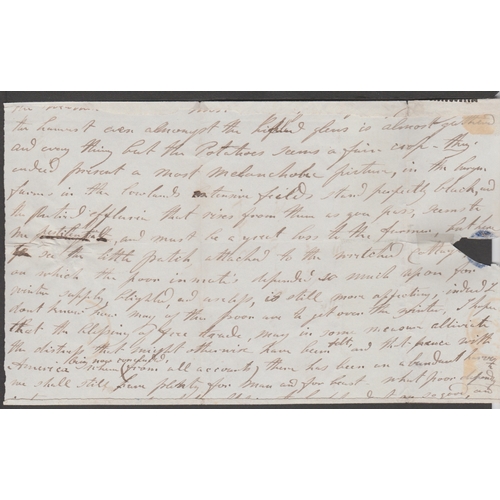 the harvest even amongst the highland glens is almost gathered
and every thing but the Potatoes seems a fair crop - they
indeed present a most melancholy picture, in the large
farms in the Lowlands extensive fields stand perfectly black, and
the putrid effluvia that rises from them as you pass, seems to
me, and must be a great loss to the farmers, but
to see the little patch attached to the wretched
on which the poor inmates depended so much upon for
winter supply, blighted and useless, is still more affecting, indeed I
dont know how many of the poor are to get over the winter, I hope
that the blessing of free trade, may in some measure alleviate
the distress that might otherwise have been felt and that peace with
being now concluded
America where (from all accounts) there has been an abundant harvest
we shall still have plenty for man and for beast. what poor